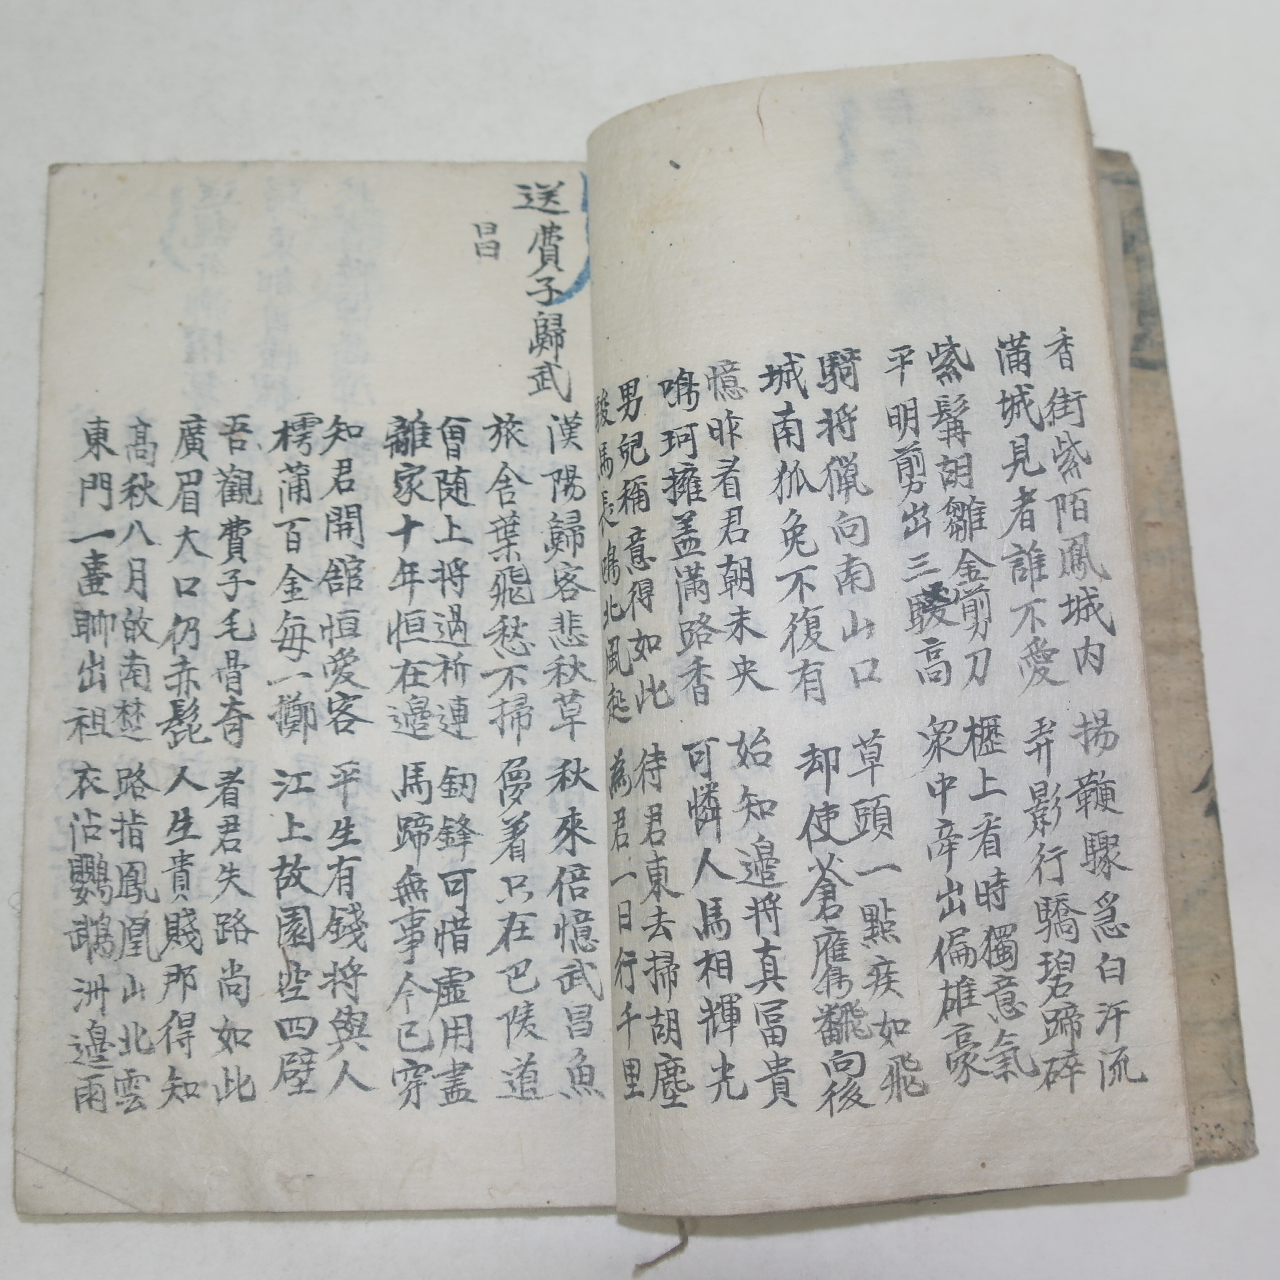 香街紫陌鳳城内 揚鞭驟急白汗流
滿城見者誰不愛 弄影行驕碧蹄碎
紫髯胡雛金剪刀 櫪上看時獨意氣
平明剪出三騣高 衆中牽出偏雄豪
騎將獵向南山口 草頭一點疾如飛
城南狐兔不復有 却使蒼鷹翻向後
憶昨看君朝未央 始知邊將真冨貴
鳴珂擁盖滿路香 可憐人馬相輝光
男兒稱意得如此 待君東去掃胡塵
駿馬長鳴北風起 為君一日行千里
送費子歸武
昌
漢陽歸客悲秋草 秋來倍憶武昌魚
旅舍葉飛愁不掃 夢着只在巴陵道
曾随上將過祈連 釰鋒可惜虛用盡
離家十年恒在邊 馬蹄無事今已穿
知君開舘恒愛客 平生有錢將與人
樗蒲百金每一擲 江上故園空四壁
吾觀費子毛骨奇 看君失路尚如此
廣眉大口仍赤髭 人生貴賤那得知
高秋八月啟南楚 路指鳳凰山北雲
東門一畫聊出祖 衣沾鸚鵡洲邊雨